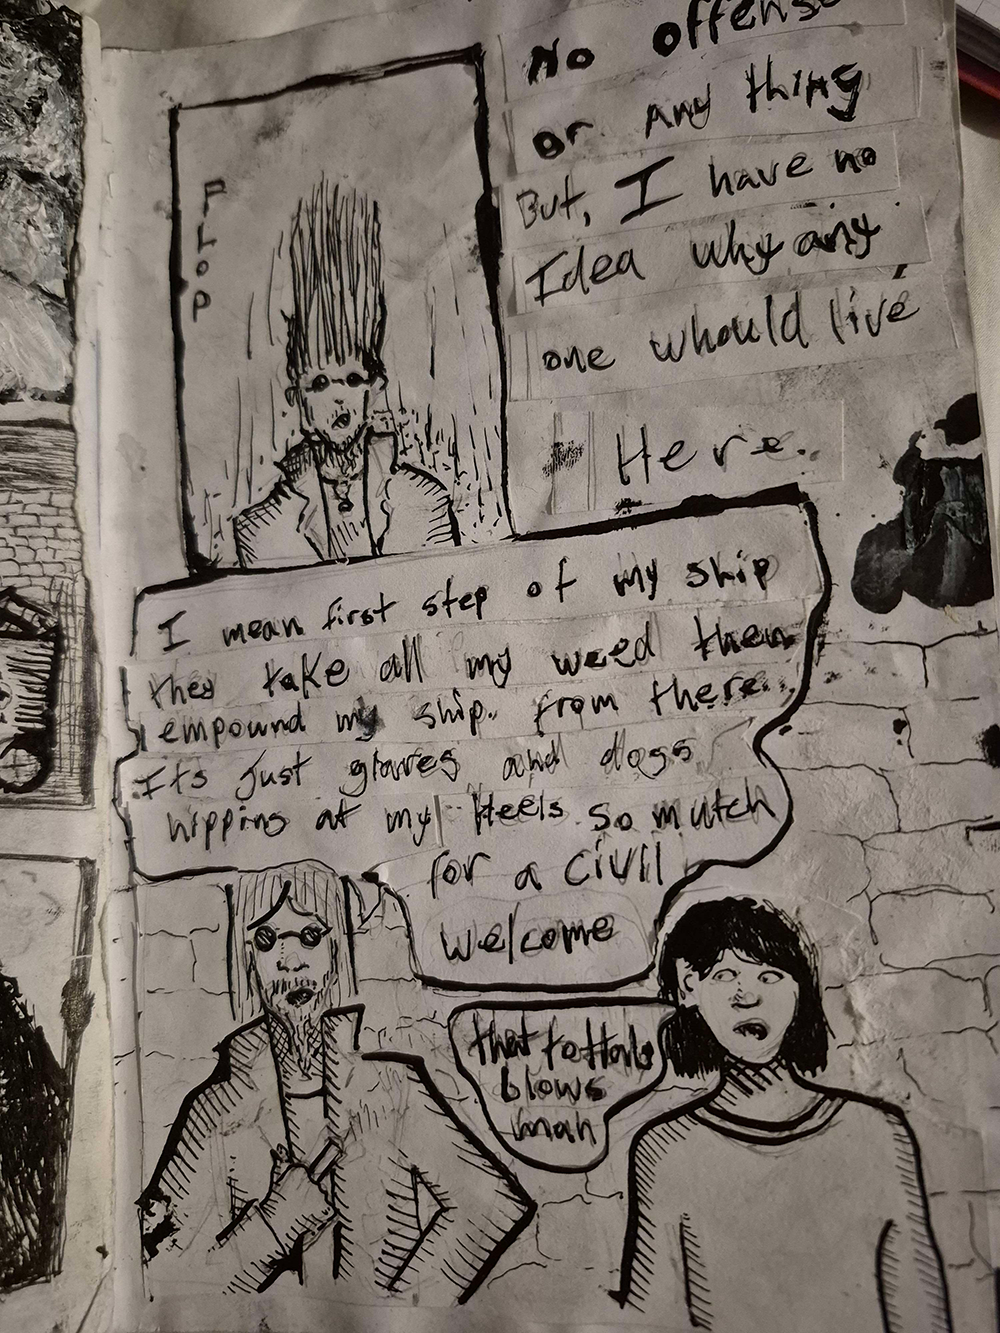 PLOP
No offense
or any thing
But, I have no
Idea why any
one whould live
Here.
I mean first step of my ship
they take all my weed then
empound my ship. from there
Its just glaves and dogs
nipping at my Heels so mutch
for a civil
welcome
that tottaly
blows
man